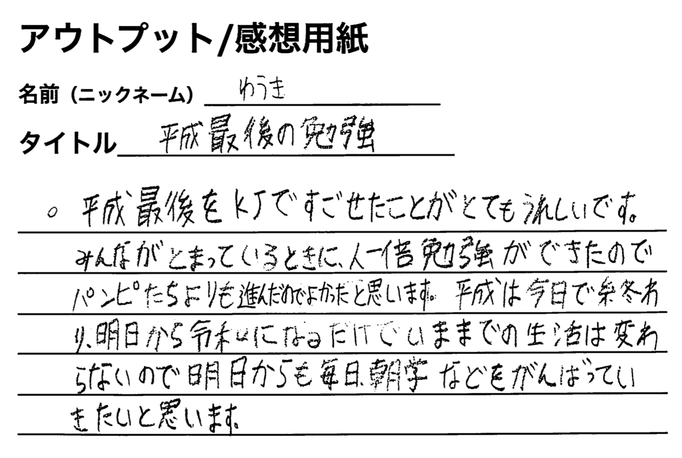 アウトプット/感想用紙
名前（ニックネーム） ゆうき
タイトル 平成最後の勉強
○ 平成最後をKJですごせたことがとてもうれしいです。
みんながとまっているときに、人一倍勉強ができたので
パンピたちよりも進んだのでよかったと思います。平成は今日で終わ
り、明日から令和になるだけでいままでの生活は変わ
らないので明日からも毎日、朝学などをがんばってい
きたいと思います。